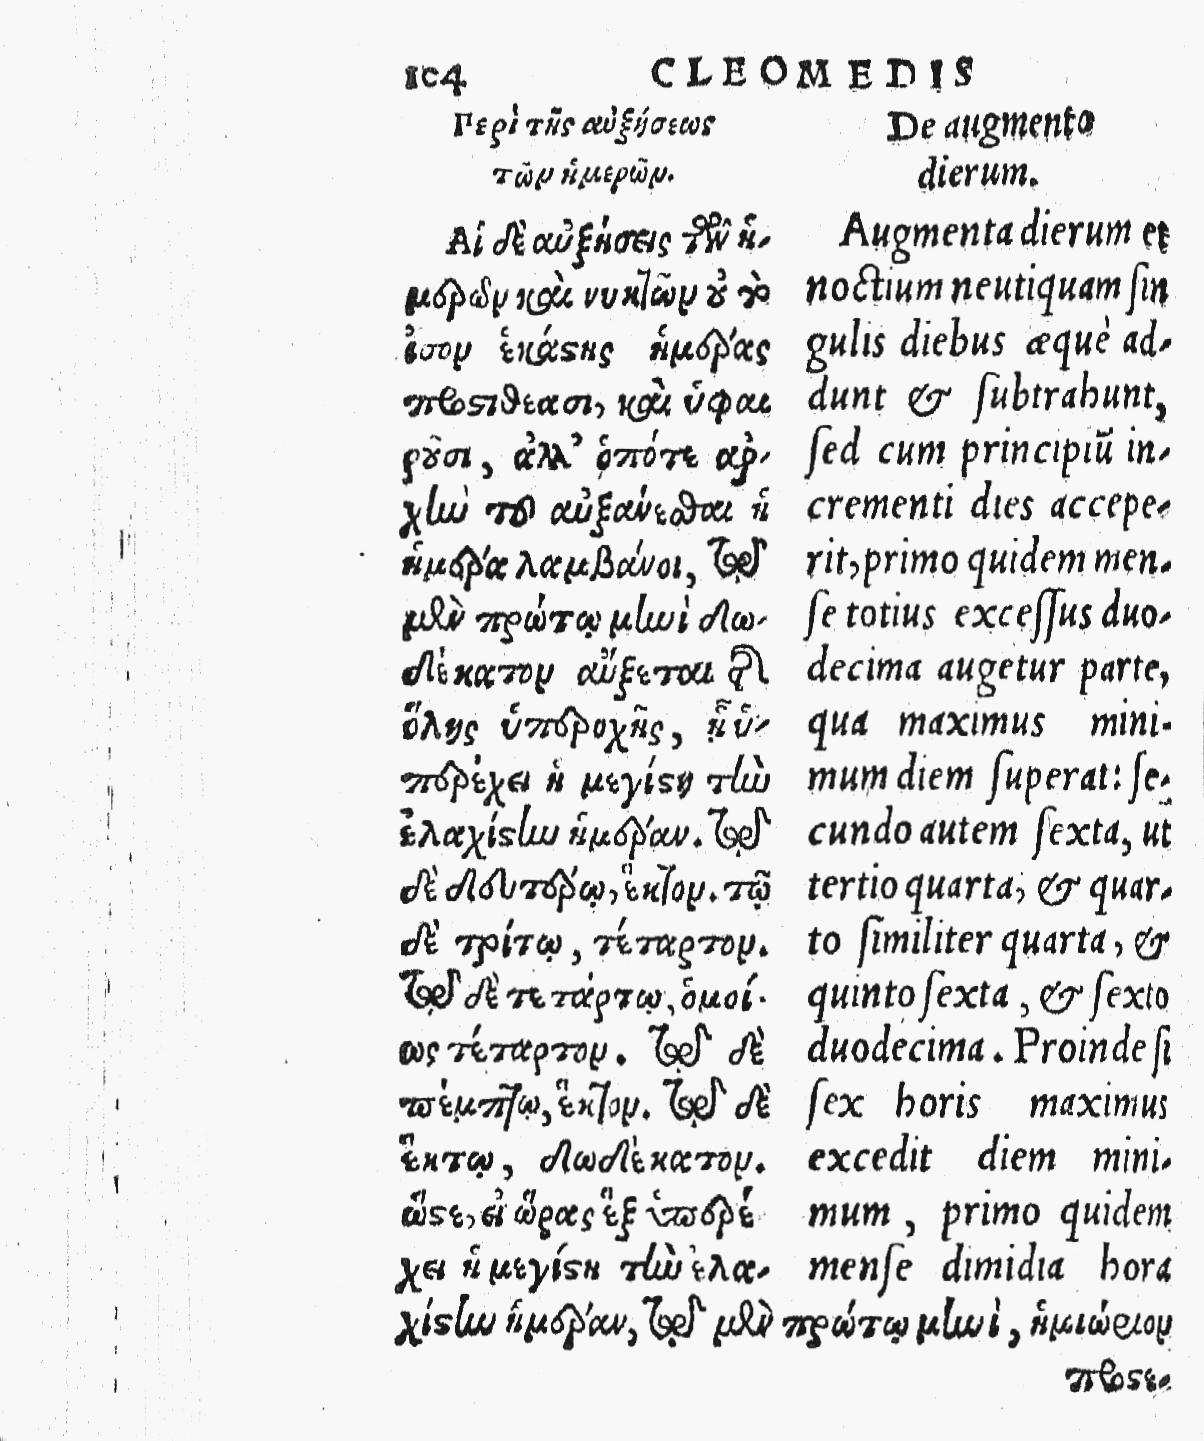 104 CLEOMEDIS
Περὶ τῆς αὐξήσεως
τῶν ἡμερῶν.
Αἱ δὲ αὐξήσεις τῶν ἡ-
μερῶν καὶ νυκτῶν οὐ τὸ
ἴσον ἑκάστης ἡμέρας
προστιθέασι, καὶ ὑφαι
ροῦσι, ἀλλ' ὁπότε αρ-
χὴν τοῦ αὐξάνεσθαι ἡ
ἡμέρα λαμβάνοι, τῷ
μὲν πρώτῳ μηνὶ δω-
δέκατον αὔξεται τῆς
ὅλης ὑπεροχῆς, ᾗ ὑ-
περέχει ἡ μεγίστη τὴν
ἐλαχίστην ἡμέραν. τῷ
δὲ δευτέρῳ, ἕκτον. τῷ
δὲ τρίτῳ, τέταρτον.
τῷ δὲ τετάρτῳ, ὁμοί-
ως τέταρτον. τῷ δὲ
πέμπτῳ, ἕκτον. τῷ δὲ
ἕκτῳ, δωδέκατον.
ὥστε, εἰ ὥρας ἓξ ὑπερέ
χει ἡ μεγίστη τὴν ἐλα-
χίστην ἡμέραν, τῷ μὲν πρώτῳ μηνὶ, ἡμιώριον
προσε-
De augmento
dierum.
Augmenta dierum et
noctium neutiquam sin
gulis diebus æquè ad-
dunt & subtrahunt,
sed cum principiū in-
crementi dies accepe-
rit, primo quidem men-
se totius excessus duo-
decima augetur parte,
qua maximus mini-
mum diem superat: se-
cundo autem sexta, ut
tertio quarta, & quar-
to similiter quarta, &
quinto sexta, & sexto
duodecima. Proinde si
sex horis maximus
excedit diem mini-
mum, primo quidem
mense dimidia hora